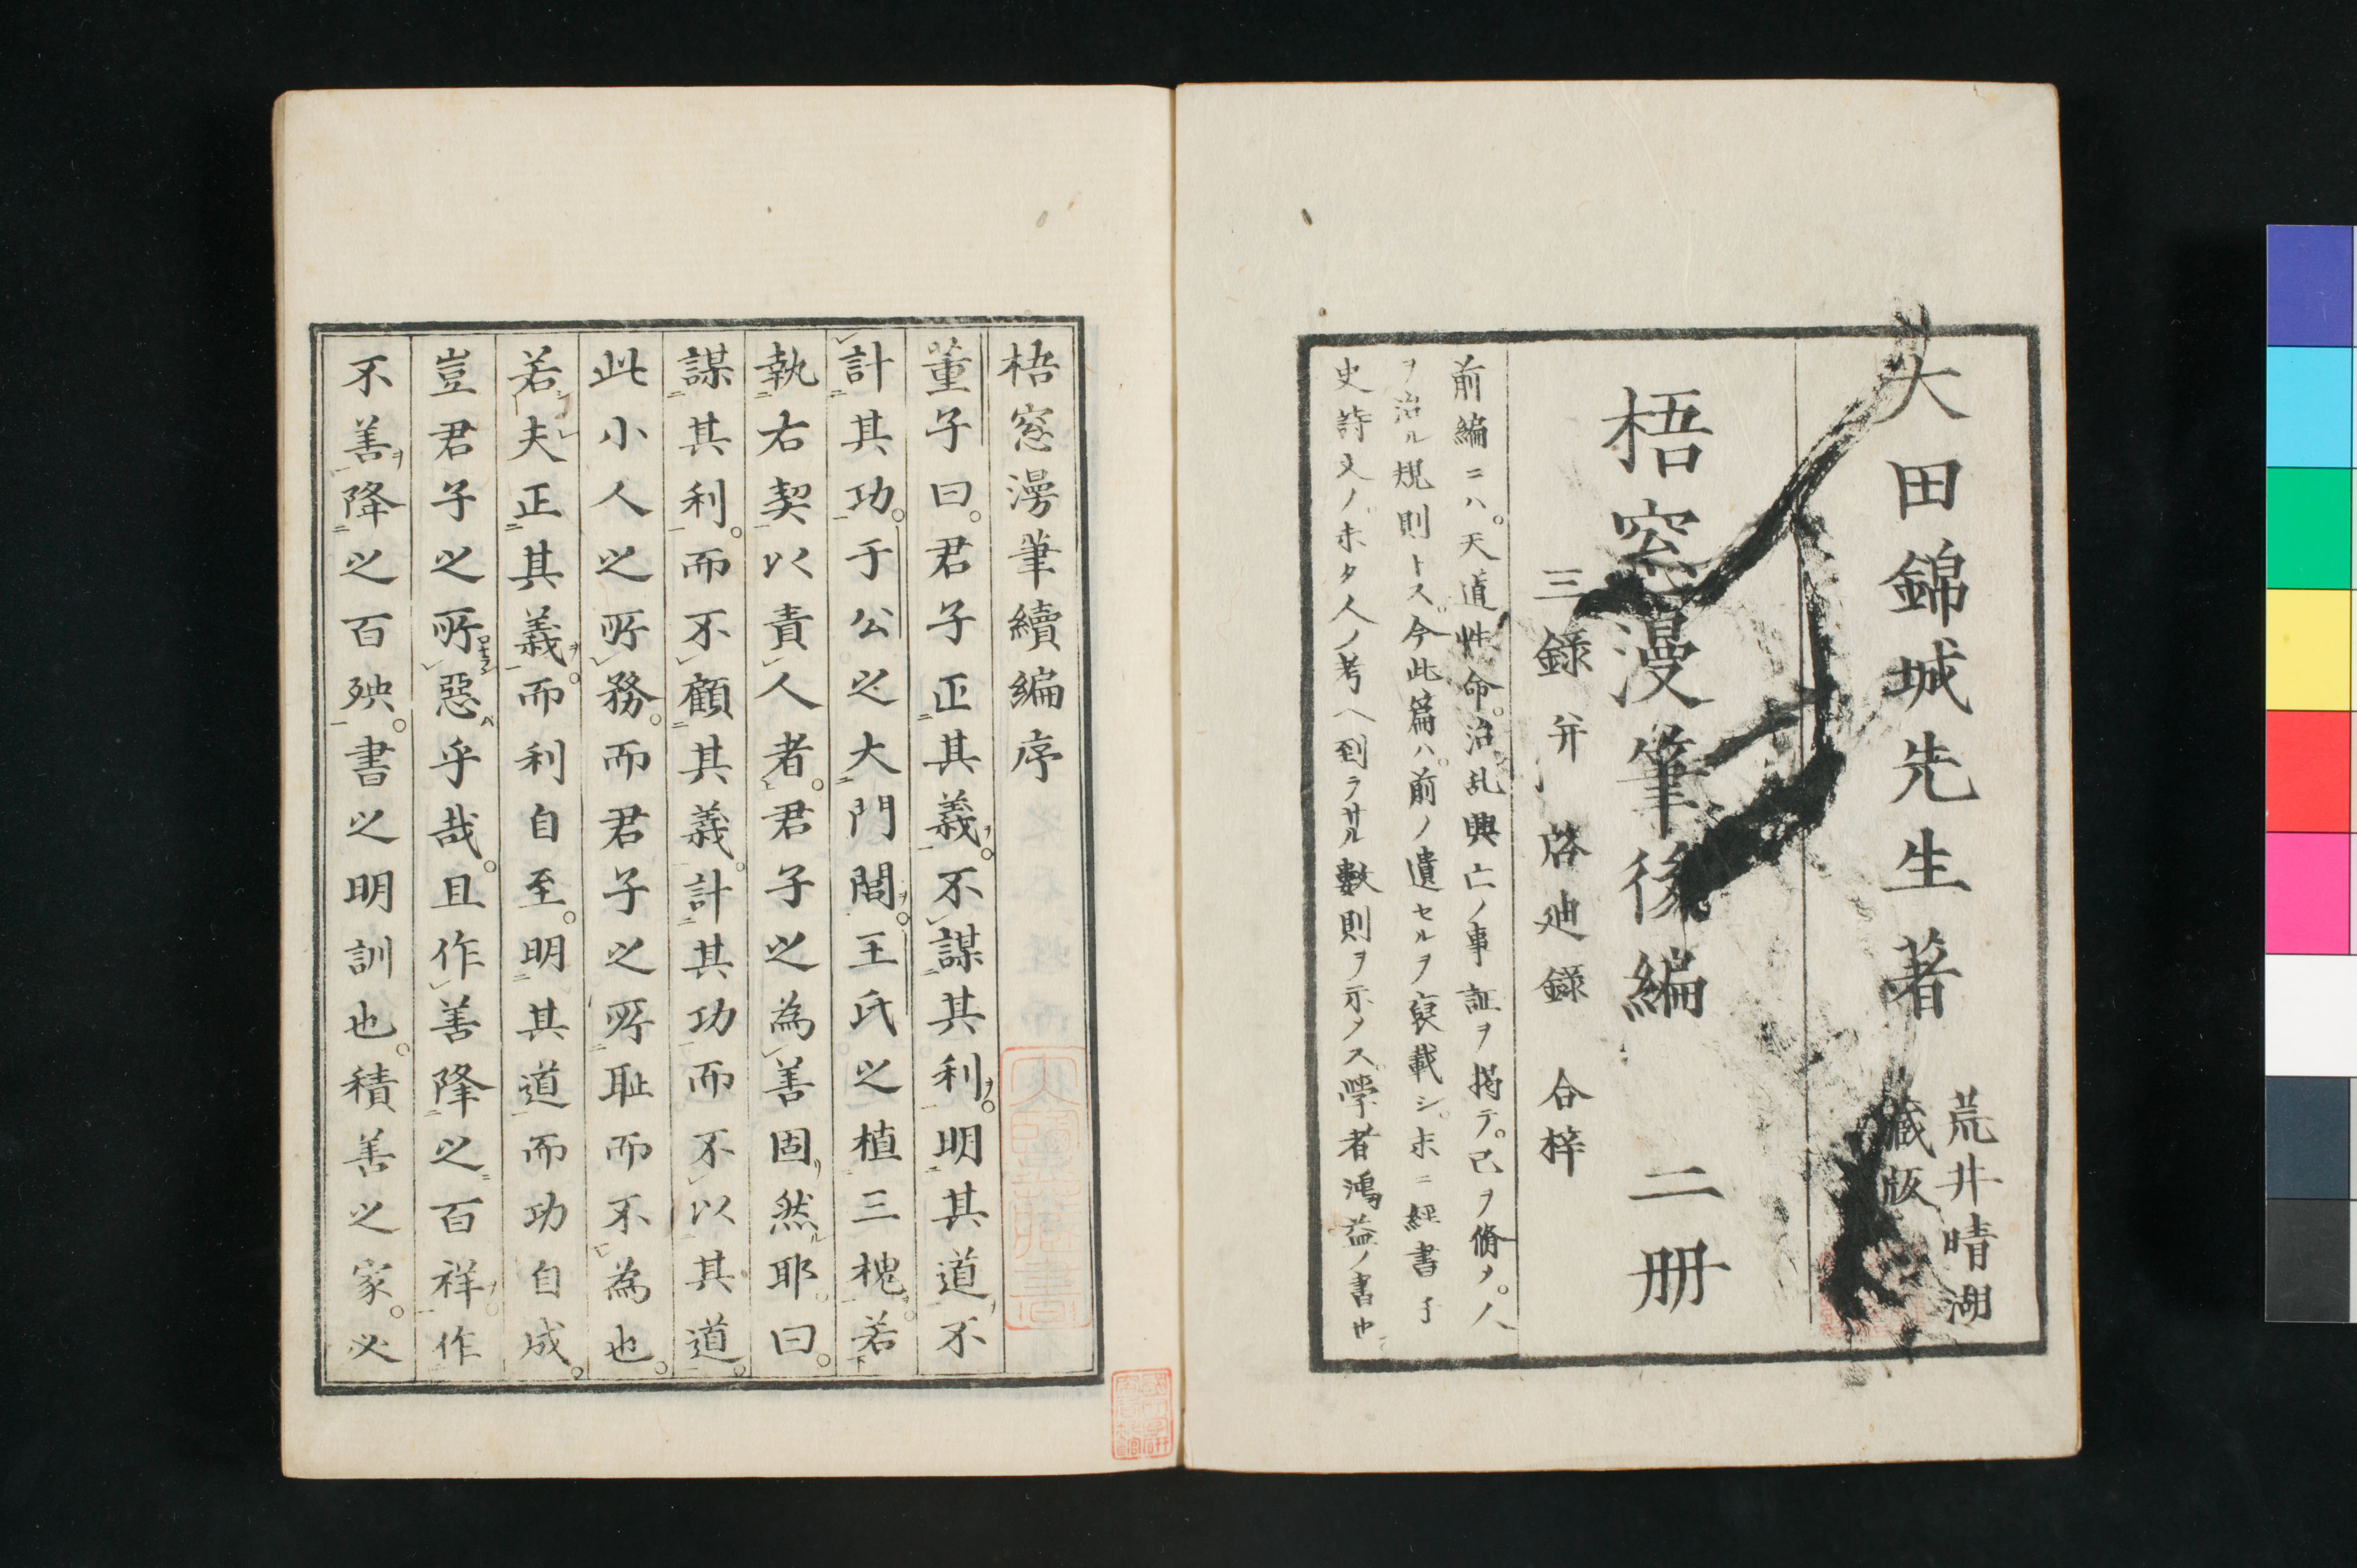 大田錦城先生著
荒井晴湖
藏版
梧窓漫筆後編 二册
三錄并啓廸錄 合梓
前編ニハ。天道性命。治乱興亡ノ事証ヲ掲テ。己ヲ脩メ。人
ヲ治ル規則トス。今此篇ハ。前ノ遺セルヲ裒載シ。末ニ經書子
史詩文ノ未タ人ノ考ヘ到ラサル數則ヲ示メス學者鴻益ノ書也
梧窓漫筆續編序
董子曰。君子正其義。不謀其利。明其道不
計其功。于公之大門閭。王氏之植三槐。若
執右契以責人者。君子之為善固然耶。曰。
謀其利。而不顧其義。計其功而不以其道。
此小人之所務。而君子之所耻而不為也。
若夫正其義。而利自至。明其道而功自成。
豈君子之所惡乎哉。且作善降之百祥。作
不善降之百殃。書之明訓也。積善之家。必